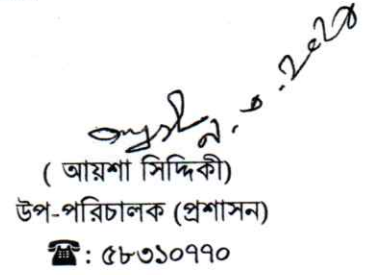 ( আয়শা সিদ্দিকী)
উপ-পরিচালক (প্রশাসন)
☎: ৫৮৩১০৭৭০